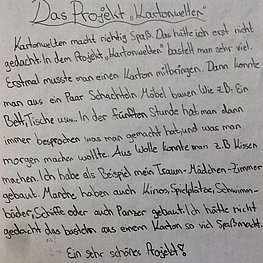 Das Projekt „Kartonwelten"
Kartonwelten macht richtig Spaß. Das hätte ich erst nicht
gedacht. In dem Projekt „Kartonwelten" bastelt man sehr viel.
Erstmal musste man einen Karton mitbringen. Dann konnte
man aus ein Paar Schachteln Möbel bauen wie z.B. Ein
Bett, Tische usw.. In der fünften Stunde hat man dann
immer besprochen was man gemacht hat, und was man
morgen machen wollte. Aus Wolle konnte man z.B Kissen
machen. Ich habe als Beispiel mein Traum-Mädchen-Zimmer
gebaut. Manche haben auch Kinos, Spielplätze, Schwimm-
bäder, Schiffe oder auch Panzer gebaut. Ich hätte nicht
gedacht das basteln aus einem Karton so viel Spaß macht.
Ein sehr schönes Projekt!